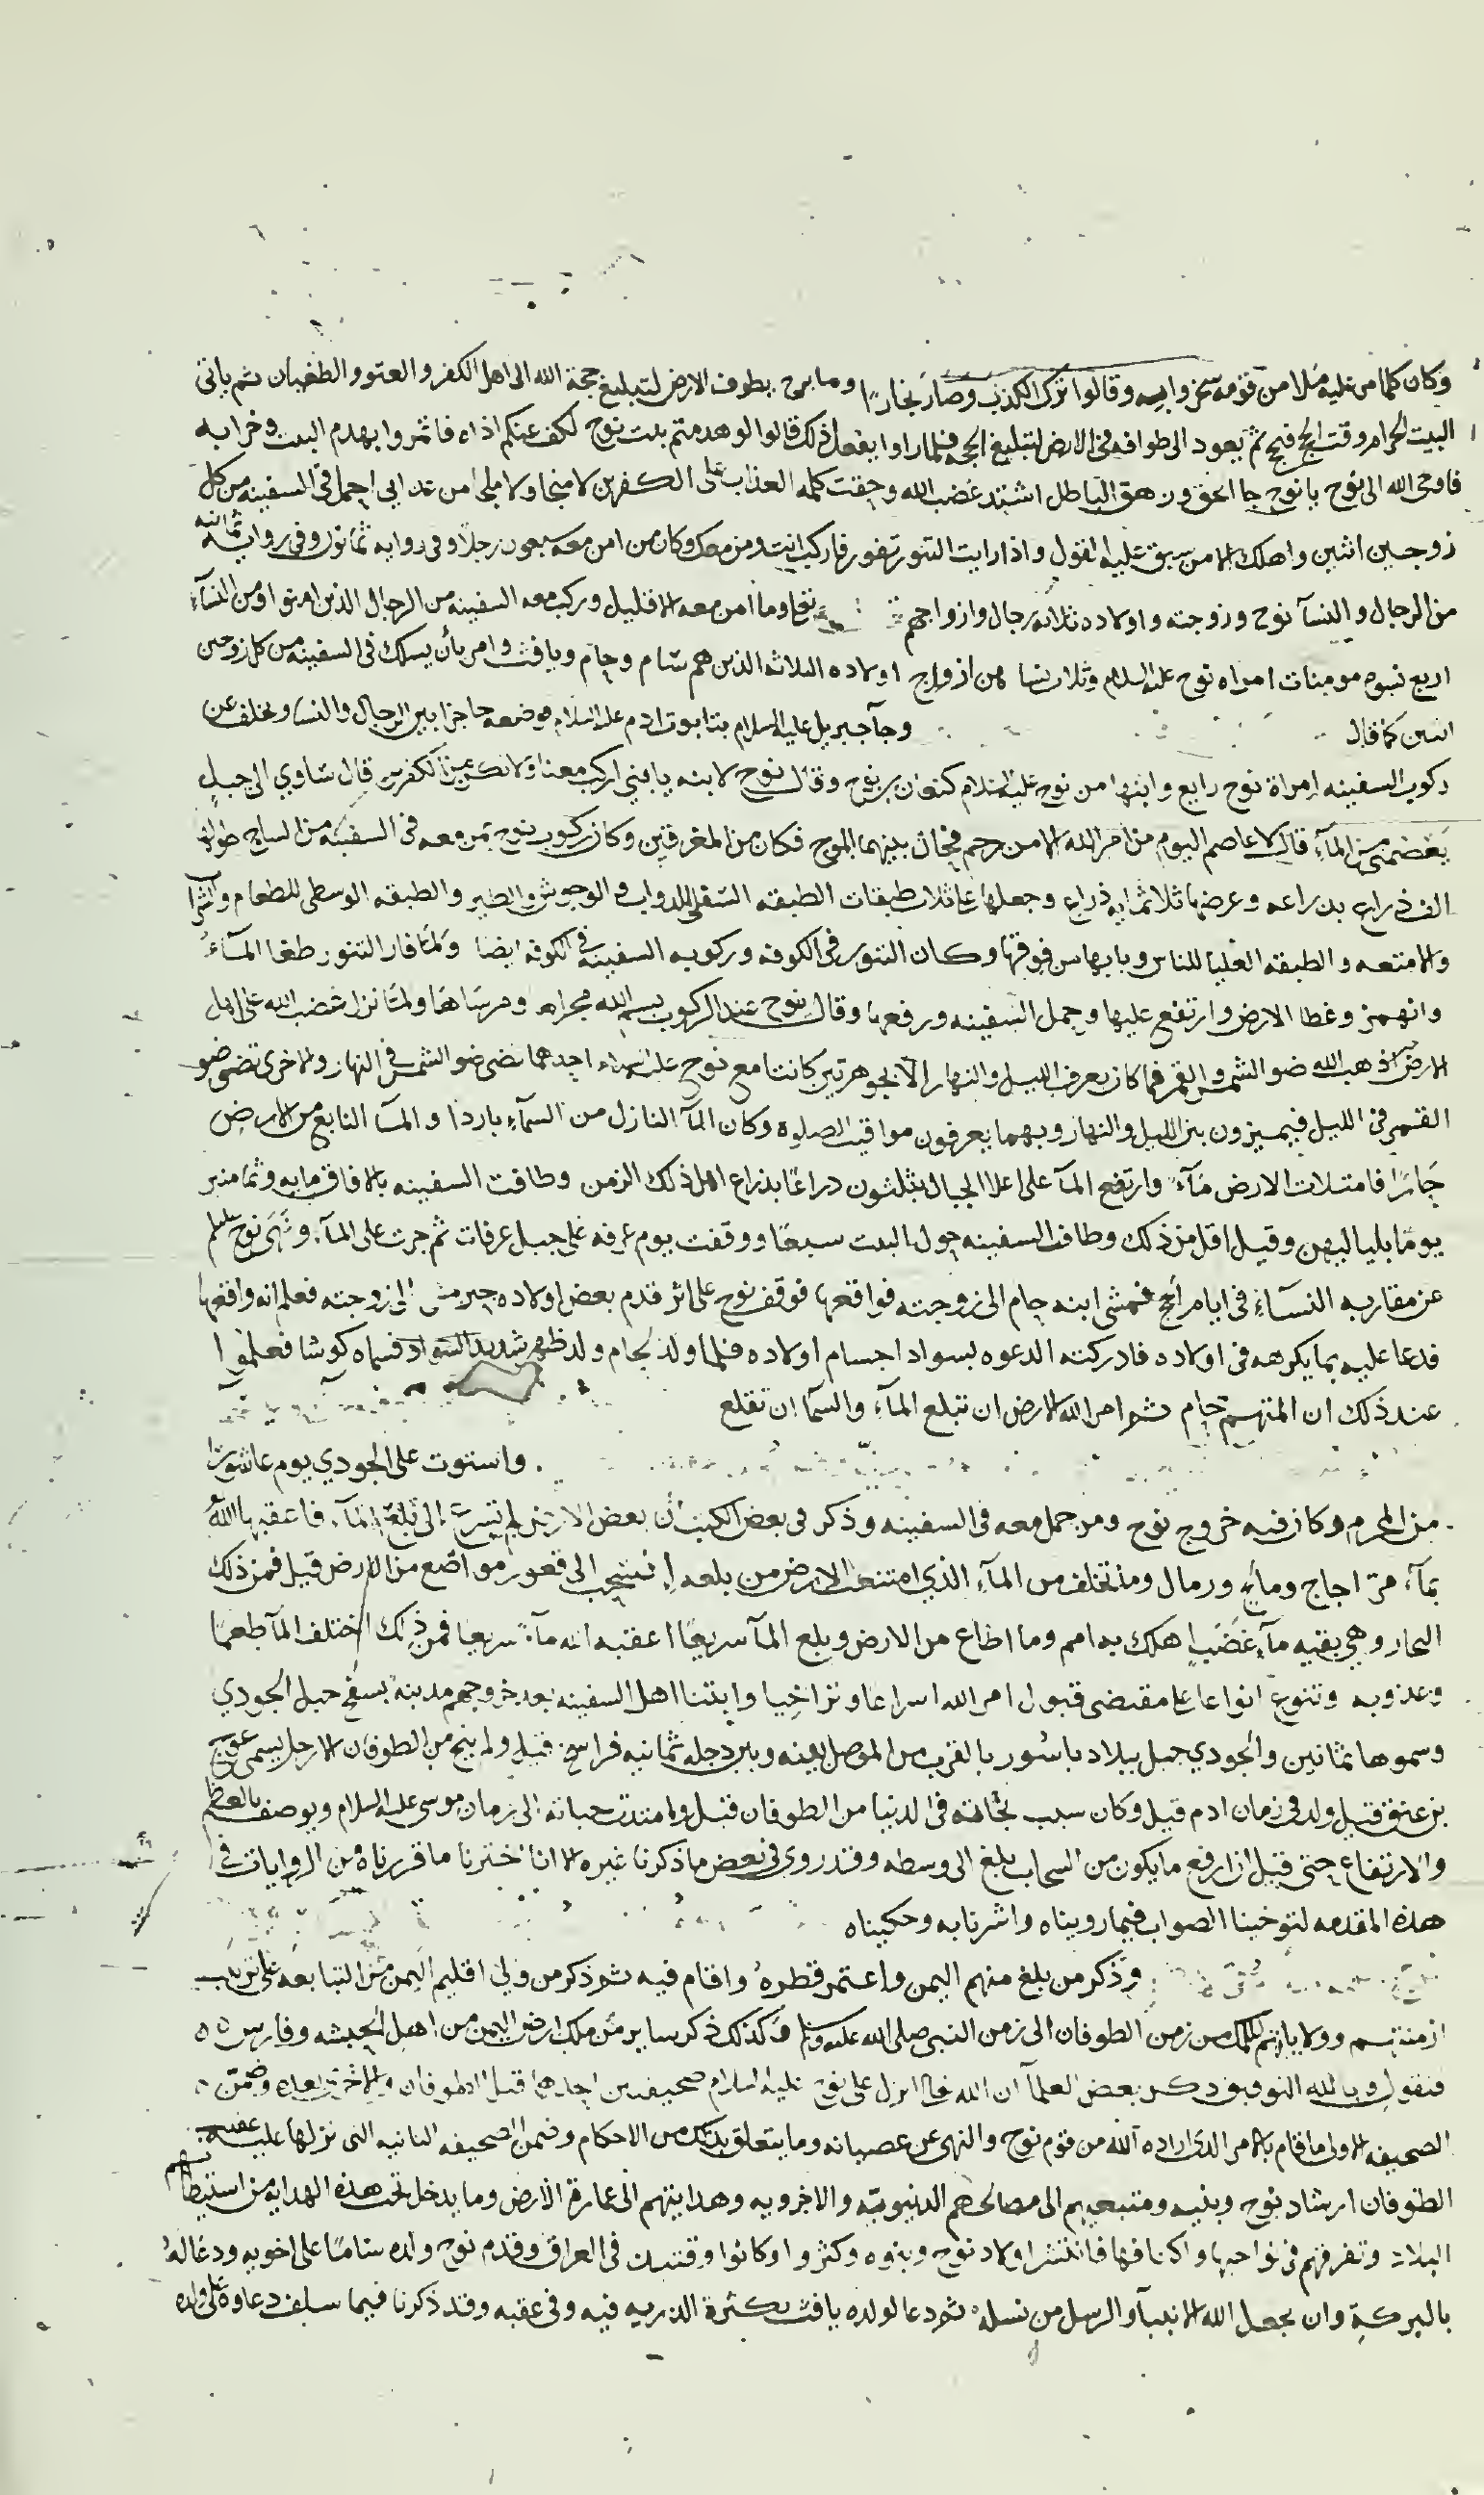 وكان كلما مر عليه ملا من قومه سخروا به وقالوا ترك الكذب وصار نجارا وما برح يطوف الارض لتبليغ حجة الله الى اهل الكفر والعتو والطغيان ثم ياتى
البيت الحرام وقت الحج فيحج ثم يعود الى طوافه فى الارض لتبليغ الحجه فلما راوا يفعل ذلك قالوا لو هدمتم بيت نوح لكف عنكم اذاه فاتمروا بهدم البيت وخرابه
فاوحى الله الى نوح يا نوح جا الحق وزهق الباطل اشتد غضب الله وحقت كلمه العذاب على الكفرين لا منجا ولا ملجا من عذابى احمل فى السفينه من كل
زوجين اثنين واهلك الا من سبق عليه القول واذا رايت التنور تفور فاركب انت ومن معك وكان من امن معه سبعون رجلا وفى روايه ثمانون وفى روايه ثمانيه
من الرجال والنسآ نوح وزوجته واولاده ثلاثه رجال وازواجهم وما امن معه الا قليل وركب معه السفينه من الرجال الذين امنوا ومن النسآء
اربع نسوه مومنات امراه نوح عليه السلام وثلاث نسا من ازواج اولاده الثلاثه الذين هم سام وحام ويافث وامر بأن يسلك فى السفينه من كل زوجين
اثنين كما قال وجآ جبريل عليه السلام بتابوت ادم عليه السلام فوضعه حاجزا بين الرجال والنسا وتخلف عن
ركوب السفينه امراة نوح رابع وابنها من نوح عليه السلام كنعان بن نوح وقال نوح لابنه يا بني اركب معنا ولا تكن مع الكفرين قال ساوي الى جبل
يعصمنى من المآء قال لا عاصم اليوم من امر الله الا من رحم فحال بينهما الموج فكان من المغرقين وكان ركوب نوح بمن معه فى السفينه من الساج طولها
الف ذراع بذراعه وعرضها ثلاثمايه ذراع وجعلها على ثلاث طبقات الطبقه السفلى للدواب والوحوش والطير والطبقه الوسطى للطعام والشراب
والامتعه والطبقه العليا للناس وبابها من فوقها وكان التنور فى الكوفه وركوبه السفينه فى الكوفه ايضا ولما فار التنور طغا المآء
وانهمر وغطا الارض وارتفع عليها وحمل السفينه ورفعها وقال نوح عند الركوب بسم الله مجراها ومرساها ولما نزل غضب الله على اهل
الارض اذهب الله ضو الشمس والقمر فما كان يعرف الليل والنهار الا بجوهرتين كانتا مع نوح احدهما تضى ضو الشمس فى النهار والاخرى تضى ضو
القمر فى الليل فيميزون بين الليل والنهار وبهما يعرفون مواقيت الصلوة وكان المآ النازل من السمآء باردا والمآ النابع من الارض
حارا فامتلات الارض مآء وارتفع المآ على اعلا الجبال بثلثون دراعا بذراع اهل ذلك الزمن وطافت السفينه بالافاق مايه وثمانين
يوما بلياليهن وقيل اقل من ذلك وطافت السفينه حول البيت سبعا ووقفت يوم عرفه على جبل عرفات ثم جرت على المآء ونهى نوح
عن مقاربه النسآء فى ايام الحج فمشى ابنه حام الى زوجته فواقعها فوقف نوح على اثر قدم بعض اولاده حين مشى الى زوجته فعلم انه واقعها
فدعا عليه بما يكرهه فى اولاده فادركته الدعوه بسواد اجسام اولاده فلما ولد لحام ولد ظهر شديد السواد فسماه كوشا فعلموا
عند ذلك ان المتهم حام ثم امر الله الارض ان تبلع المآء والسمآ ان تقلع
واستوت على الجودي يوم عاشورا
من المحرم وكان فيه خروج نوح ومن حمل معه فى السفينه وذكر فى بعض الكتب أن بعض الارض لم تسرع الى بلع المآء فاعقبها الله
بمآء مر اجاج ومالح ورمال وما تخلف من المآء الذي امتنعت الارض من بلعه انسحب الى قعور مواضع من الارض قيل فمن ذلك
البحار وهي بقيه مآء غضب اهلك به امم وما اطاع من الارض وبلع المآ سريعا اعقبه الله مآء سريعا فمن ذلك اختلف المآ طعما
وعذوبه وتنوع انواعا على مقتضى قبول امر الله اسراعا وتراخيا وابتنا اهل السفينه بعد خروجهم مدينه بسفح جبل الجودي
وسموها ثمانين والجودي جبل ببلاد باسور بالقرب من الموصل بينه وبين دجله ثمانيه فراسخ قيل ولم ينج من الطوفان الا رجل يسمى عوج
بن عنق قيل ولد فى زمان ادم قيل وكان سبب نجاته فى الدنيا من الطوفان قيل وامتدت حياته الى زمان موسى عليه السلام ويوصف بالعظم
والارتفاع حتى قيل ان ارفع ما يكون من السحاب يبلغ الى وسطه وقد روى فى بعض ما ذكرنا غيره الا انا اخترنا ما قررناه من الروايات فى
هذه المقدمه لتوخينا الصواب فيما رويناه واشرنا به وحكيناه
وذكر من بلغ منهم اليمن واعتمر قطره واقام فيه ثم ذكر من ولي اقليم اليمن من التبابعه على ترتيب
ازمنتهم وولاياتهم من زمن الطوفان الى زمن النبى صلى الله عليه وسلم وكذلك ذكر ساير من ملك ارض اليمن من اهل الحبشه وفارس
فنقول وبالله التوفيق ذكر بعض العلمآ ان الله تعالى انزل على نوح عليه السلام صحيفتين احدهما قبل الطوفان والاخرى بعده وضمن
الصحيفه الاولى ما قام بالامر الذى اراده الله من قوم نوح والنهى عن عصيانه وما يتعلق بذلك من الاحكام وضمن الصحيفه الثانيه التى نزلها عليه عقب
الطوفان ارشاد نوح وبنيه ومتبعيهم الى مصالحهم الدنيويه والاخرويه وهدايتهم الى عمارة الارض وما يدخل تحت هذه الهدايه من استيطانهم
البلاد وتفرقهم فى نواحيها واكنافها فانتشر اولاد نوح وبنوه وكثروا وكانوا وقتيذ فى العراق وقدم نوح ولده ساما على اخويه ودعا له
بالبركة وان يجعل الله الانبيآ والرسل من نسله ثم دعا لولده يافث بكثرة الذريه فيه وفى عقبه وقد ذكرنا فيما سلف دعاوه على ولده